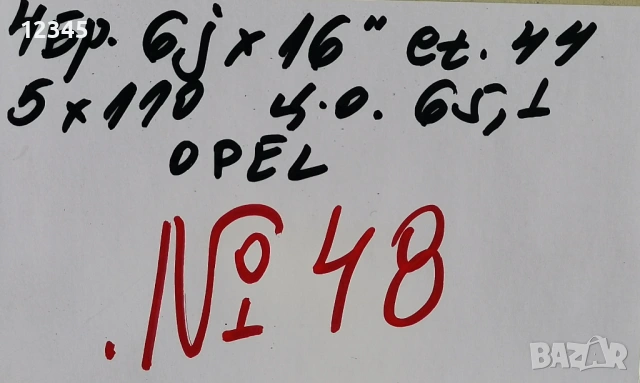 12345
4бр. 6j x 16" et. 44
5 x 110 ц.о. 65,1
OPEL
.№ 48
BAZAR